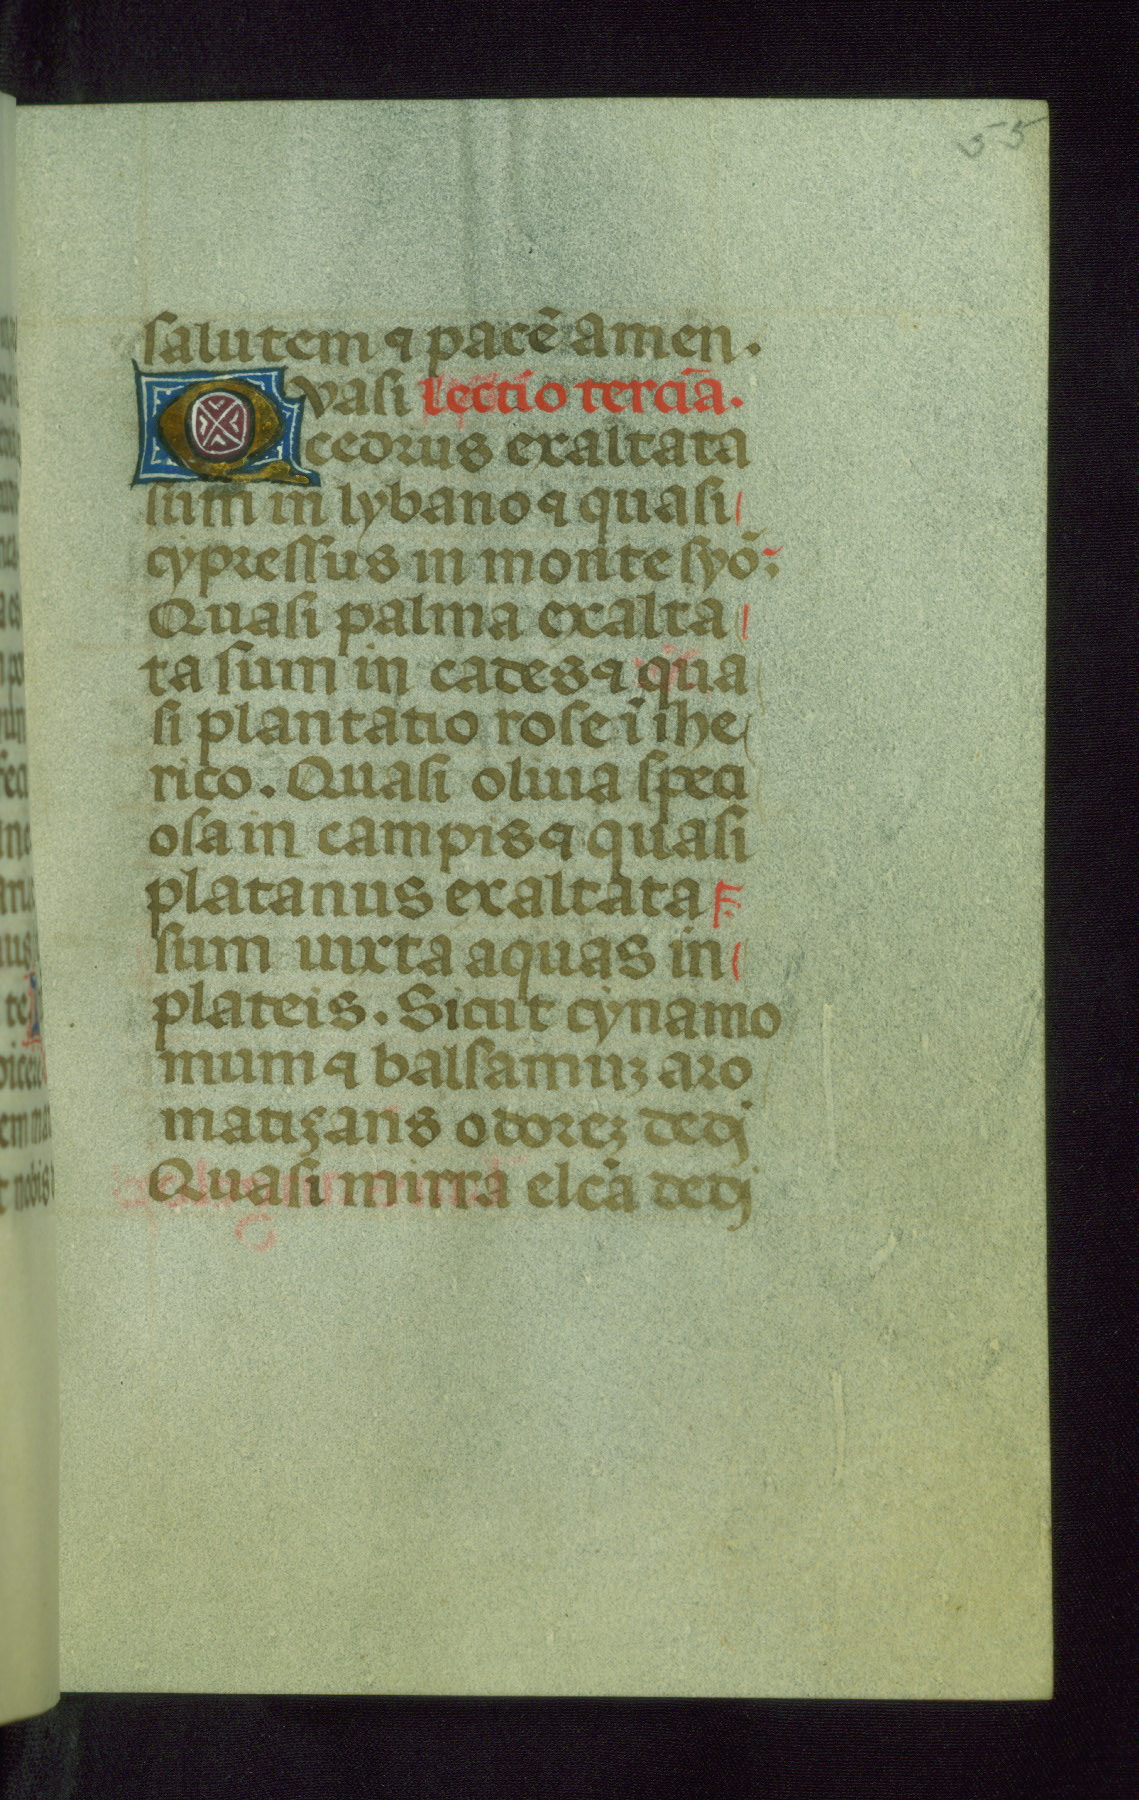 55
salutem ⁊ pacē amen.
Qvasi lectio tercīa.
cedrus exaltata
sum in lybano ⁊ quasi
cypressus in monte syō:
Quasi palma exalta
ta sum in cades ⁊ qua
si plantatio rose ī ihe
rico. Quasi oliua speci
osa in campis ⁊ quasi
platanus exaltata
sum iuxta aquas in
plateis. Sicut cynamo
mum ⁊ balsamuꝫ aro
matiȝans odoreꝫ dedj
Quasi mirra elcā dedj